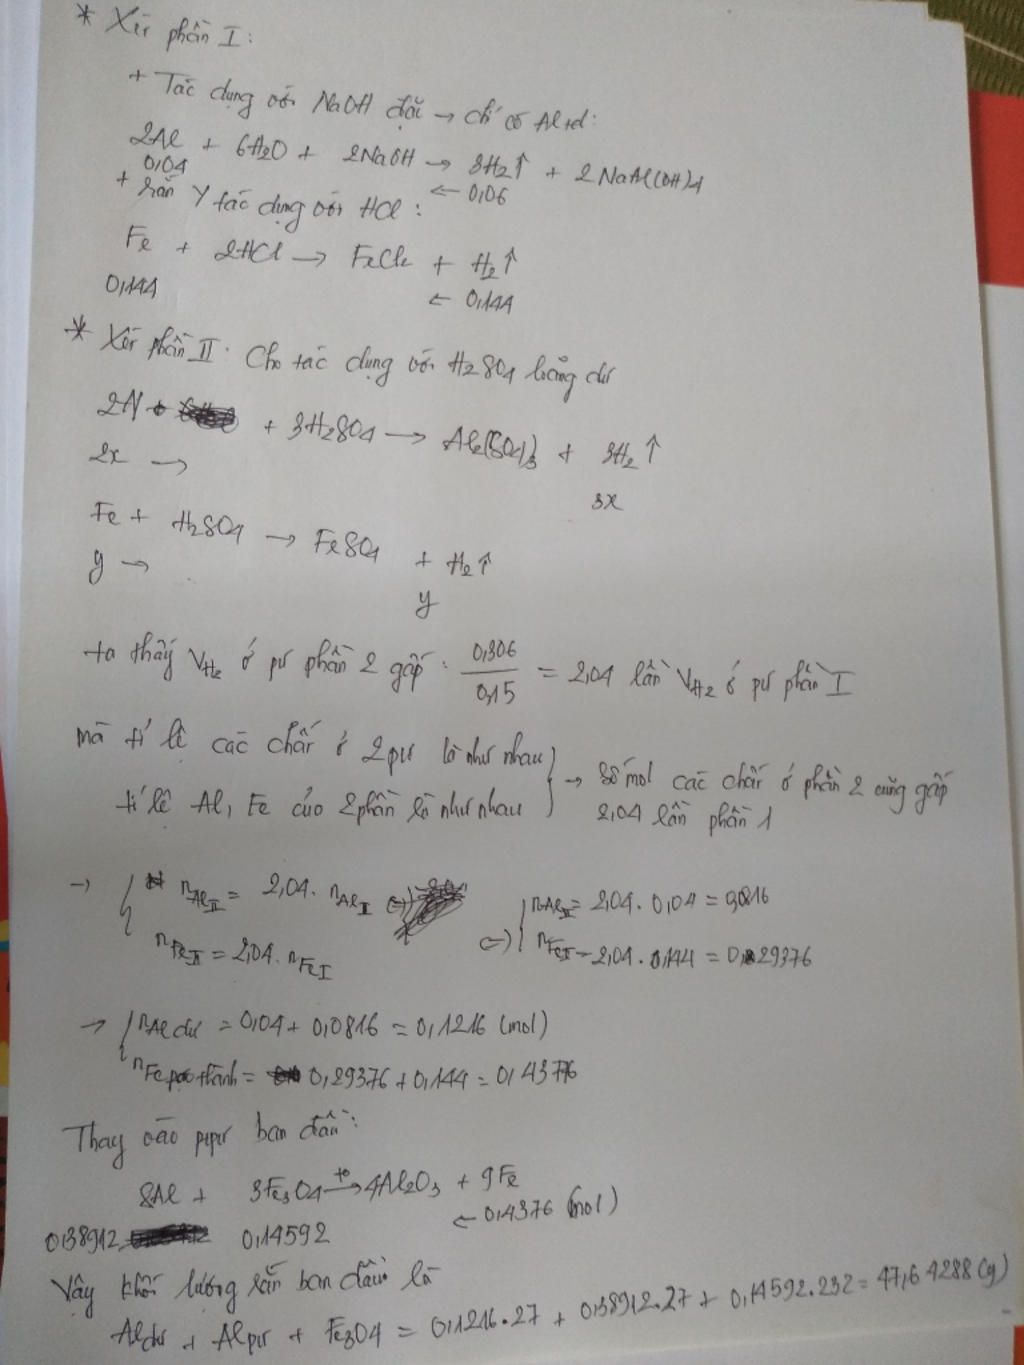 * Xét phần I:
+ Tác dụng với NaOH đặc → chỉ có Al dư:
2Al + 6H2O + 2NaOH → 3H2↑ + 2NaAl(OH)4
0,04 ← 0,06
+ rắn Y tác dụng với HCl:
Fe + 2HCl → FeCl2 + H2↑
0,144 ← 0,144
* Xét phần II: Cho tác dụng với H2SO4 loãng dư
2Al + 3H2SO4 → Al2(SO4)3 + 3H2↑
2x → 3x
Fe + H2SO4 → FeSO4 + H2↑
y → y
ta thấy VH2 ở pư phần 2 gấp: 0,306/0,15 = 2,04 lần VH2 ở pư phần I
mà tỉ lệ các chất ở 2 pư là như nhau
tỉ lệ Al, Fe của 2 phần là như nhau } → Số mol các chất ở phần 2 cũng gấp
2,04 lần phần 1
→ { nAlII = 2,04. nAlI <=> { nAlII = 2,04. 0,04 = 0,0816
nFeII = 2,04. nFeI nFeII = 2,04. 0,144 = 0,29376
→ { nAl dư = 0,04 + 0,0816 = 0,1216 (mol)
nFe tạo thành = 0,29376 + 0,144 = 0,43776
Thay vào ptpư ban đầu:
8Al + 3Fe3O4 →to 4Al2O3 + 9Fe
0,38912 0,14592 ← 0,4376 (mol)
Vậy khối lượng rắn ban đầu là
Al dư + Al pư + Fe3O4 = 0,1216.27 + 0,38912.27 + 0,14592.232 = 47,64288 (g)